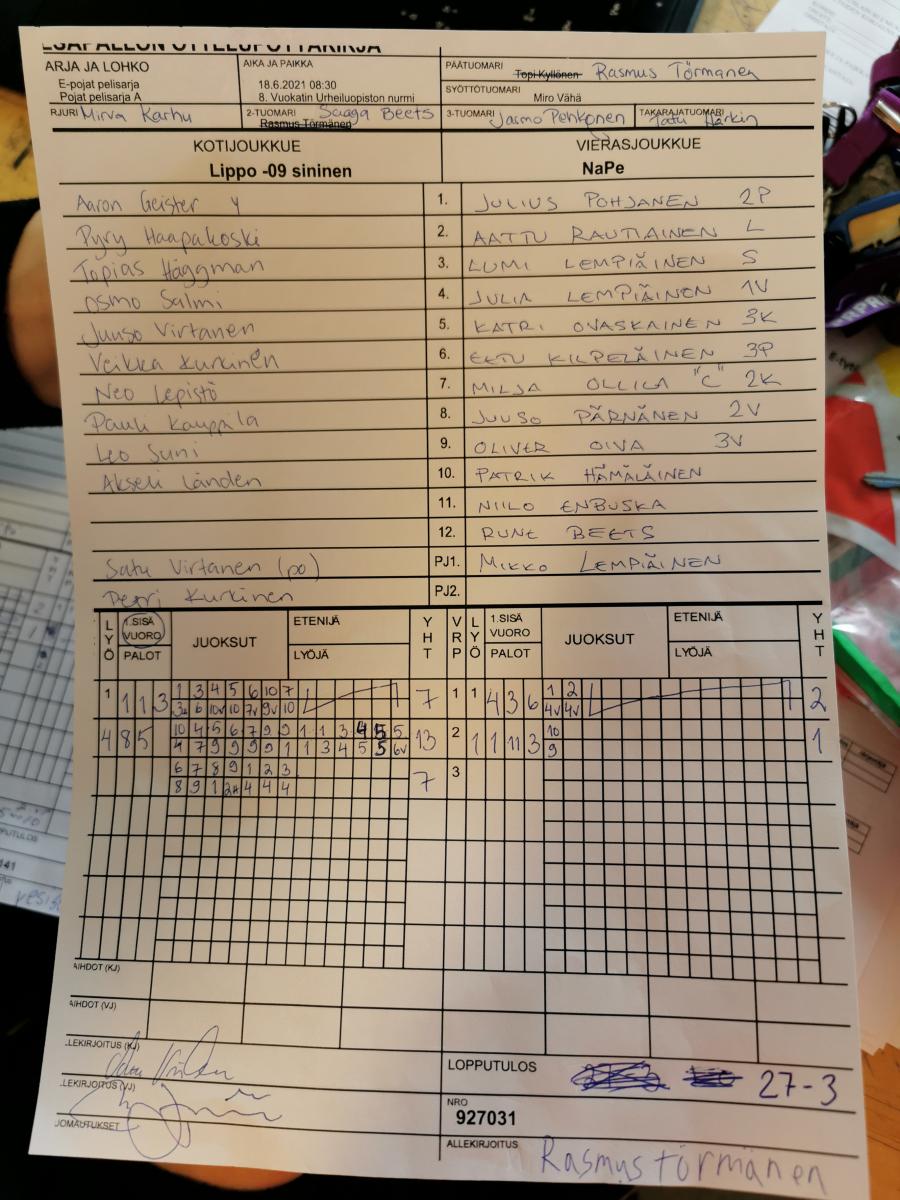 ESÄPALLON OTTELUPÖYTÄKIRJA
ARJA JA LOHKO
E-pojat pelisarja
Pojat pelisarja A
AIKA JA PAIKKA
18.6.2021 08:30
8. Vuokatin Urheiluopiston nurmi
PÄÄTUOMARI
Topi Kyllönen Rasmus Törmänen
SYÖTTÖTUOMARI
Miro Vähä
RJURI Mirva Karhu
2-TUOMARI Saaga Beets
Rasmus Törmänen
3-TUOMARI Jarmo Pehkonen
TAKARAJATUOMARI
KOTIJOUKKUE
Lippo -09 sininen
VIERASJOUKKUE
NaPe
Aaron Geister 4 1. JULIUS POHJANEN 2P
Pyry Haapakoski 2. AATTU RAUTIAINEN L
Topias Häggman 3. LUMI LEMPIÄINEN S
Osmo Salmi 4. JULIA LEMPIÄINEN 1V
Juuso Virtanen 5. KATRI OVASKAINEN 3K
Veikka Kurkinen 6. EETU KILPELÄINEN 3P
Neo Lepistö 7. MILJA OLLILA "C" 2K
Pauli Kauppala 8. JUUSO PÄRNÄNEN 2V
Leo Suni 9. OLIVER OIVA 3V
Akseli Länden 10. PATRIK HÄMÄLÄINEN
11. NIILO ENBUSKA
12. RUNE BEETS
Satu Virtanen (po) PJ1. MIKKO LEMPIÄINEN
Petri Kurkinen PJ2.
LYÖ 1.SISÄ VUORO PALOT JUOKSUT ETENIJÄ LYÖJÄ YHT VRP LYÖ 1.SISÄ VUORO PALOT JUOKSUT ETENIJÄ LYÖJÄ YHT
1 1 1 3 1 3 4 5 6 10 7 7 1 1 4 3 6 1 2 2
3v 6 10v 10 7v 9v 10 4v 4v
4 8 5 10 4 5 6 7 9 9 1 1 3 4 5 5 13 2 1 1 11 3 10 1
4 7 9 9 9 9 1 1 3 4 5 5 6v 9
6 7 8 9 1 2 3 7 3
8 9 1 2 4 4 4
AIHDOT (KJ)
AIHDOT (VJ)
LEKIRJOITUS (KJ)
LEKIRJOITUS (VJ)
JOMAUTUKSET
LOPPUTULOS 27-3
NRO
927031
ALLEKIRJOITUS Rasmus Törmänen